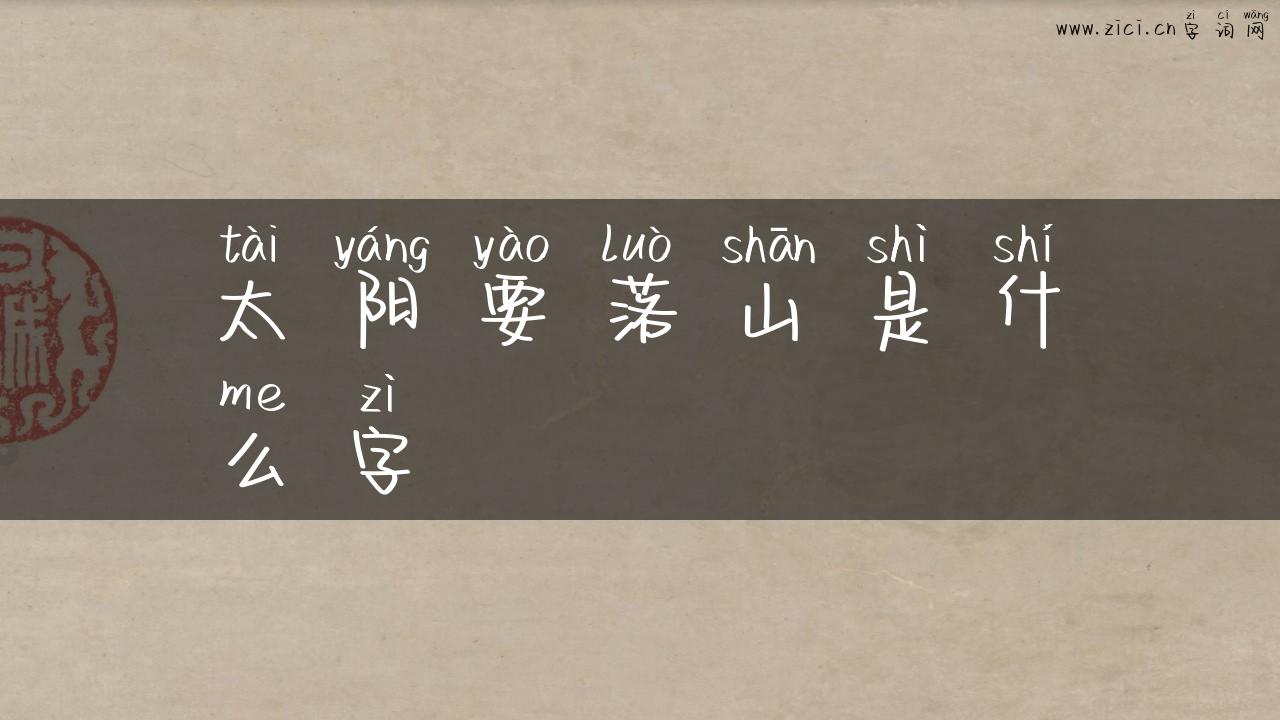 www.zici.cn zì cí wǎng
字词网
tài yáng yào luò shān shì shí
太阳要落山是什
me zì
么字